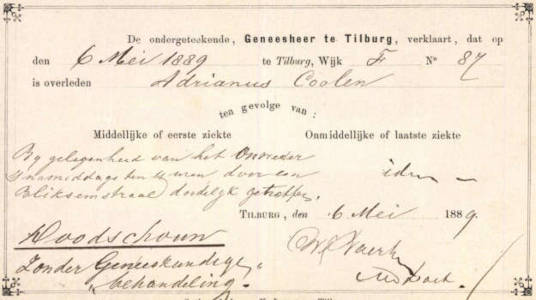 De ondergeteekende, Geneesheer te Tilburg, verklaart, dat op
den 6 Mei 1889 te Tilburg, Wijk F No 87
is overleden Adrianus Coolen
ten gevolge van:
Middellijke of eerste ziekte Onmiddellijke of laatste ziekte
By gelegenheid van het Onweder
's namiddags ten 4 ure door een idem
Bliksemstraal dodelijk getroffen
TILBURG, den 6 Mei 1889.
Doodschouw
Zonder Geneeskundige
behandeling.